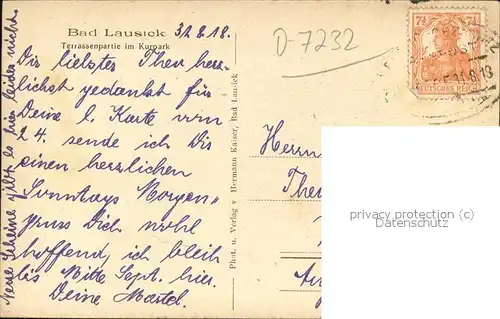 Bad Lausick
Terrassenpartie im Kurpark
31.8.18.
D-7232
Dir liebster Theu herz-
lichst gedankt für
Deine l. Karte vom
24. sende ich Dir
einen herzlichen
Sonntags Morgen=
gruss Dich wohl
hoffend, ich bleib
bis Mitte Sept. hier.
Deine
Neue Scheine gibt es hier leider nicht
Phot. u. Verlag v. Hermann Kaiser, Bad Lausick
7½ 7½
DEUTSCHES REICH
Herrn
Theu
privacy protection (c)
Datenschutz